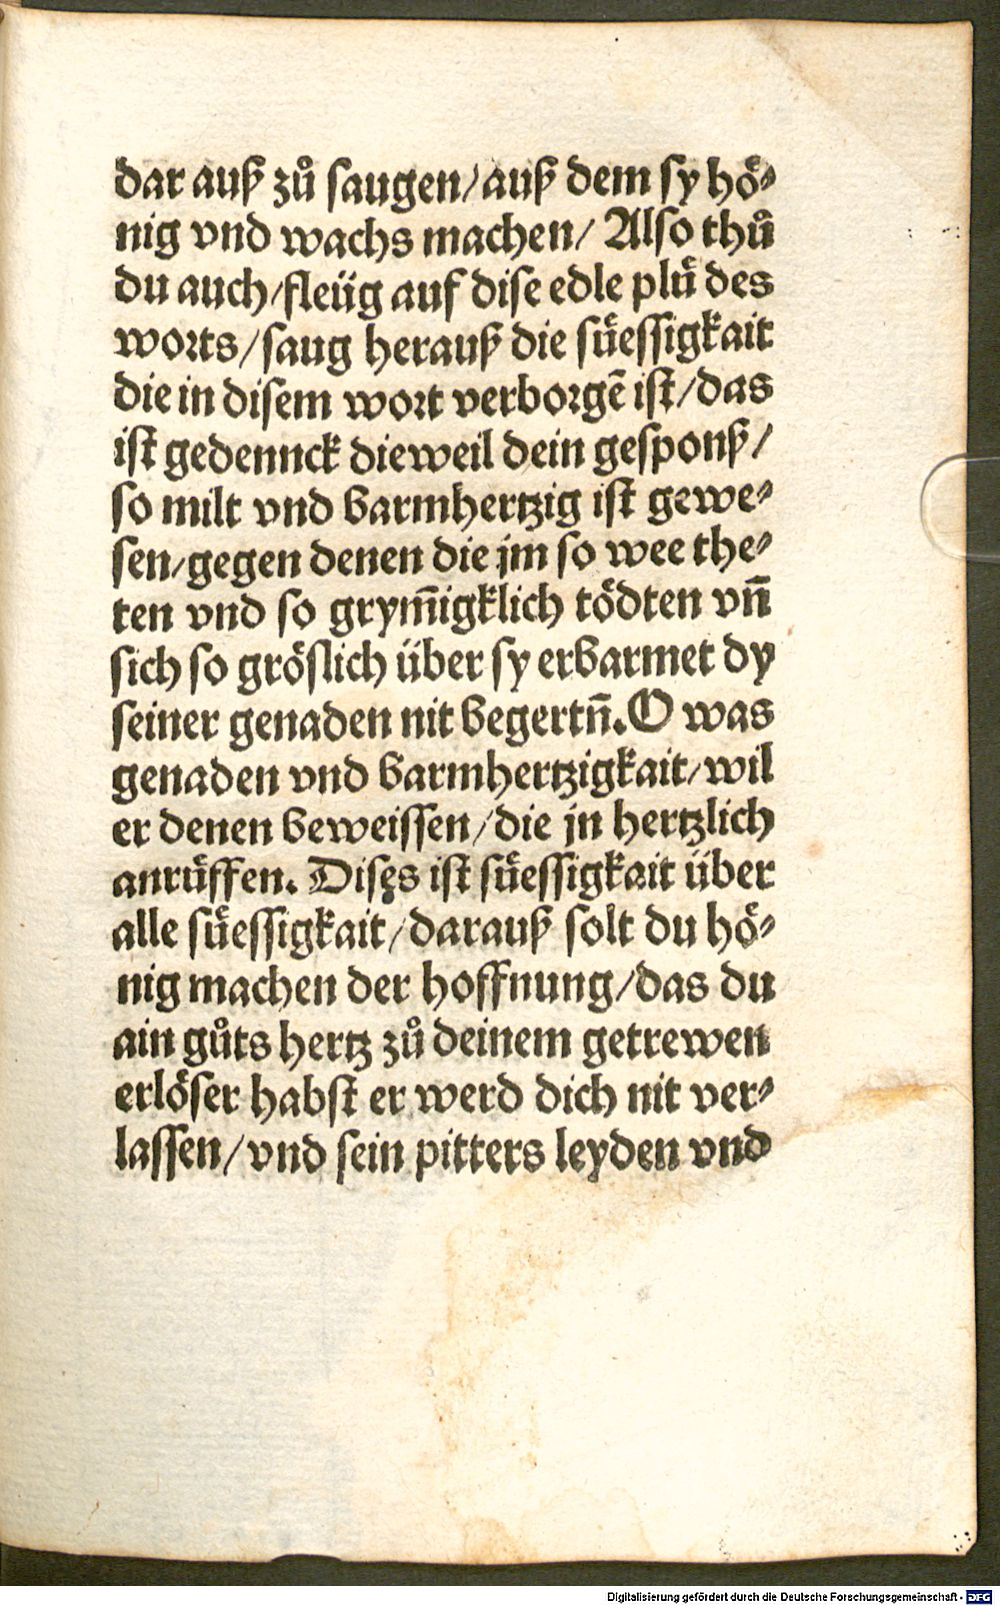 dar auß zů saugen/auß dem sy hö⸗
nig vnd wachs machen/ Also thů
du auch/fleüg auf dise edle plů des
worts/saug herauß die sueͤssigkait
die in disem wort verborgē ist/das
ist gedennck dieweil dein gesponß/
so milt vnd barmhertzig ist gewe⸗
sen/gegen denen die jm so wee the⸗
ten vnd so grym̄igklich tödten vn̄
sich so gröslich über sy erbarmet dy
seiner genaden nit begertn̄. O was
genaden vnd barmhertzigkait/wil
er denen beweissen/die jn hertzlich
anruͤffen. Dises ist suͤessigkait über
alle suͤessigkait/darauß solt du hö⸗
nig machen der hoffnung/das du
ain gůts hertz zů deinem getrewen
erlöser habst er werd dich nit ver⸗
lassen/vnd sein pitters leyden vnd
Digitalisierung gefördert durch die Deutsche Forschungsgemeinschaft - DFG